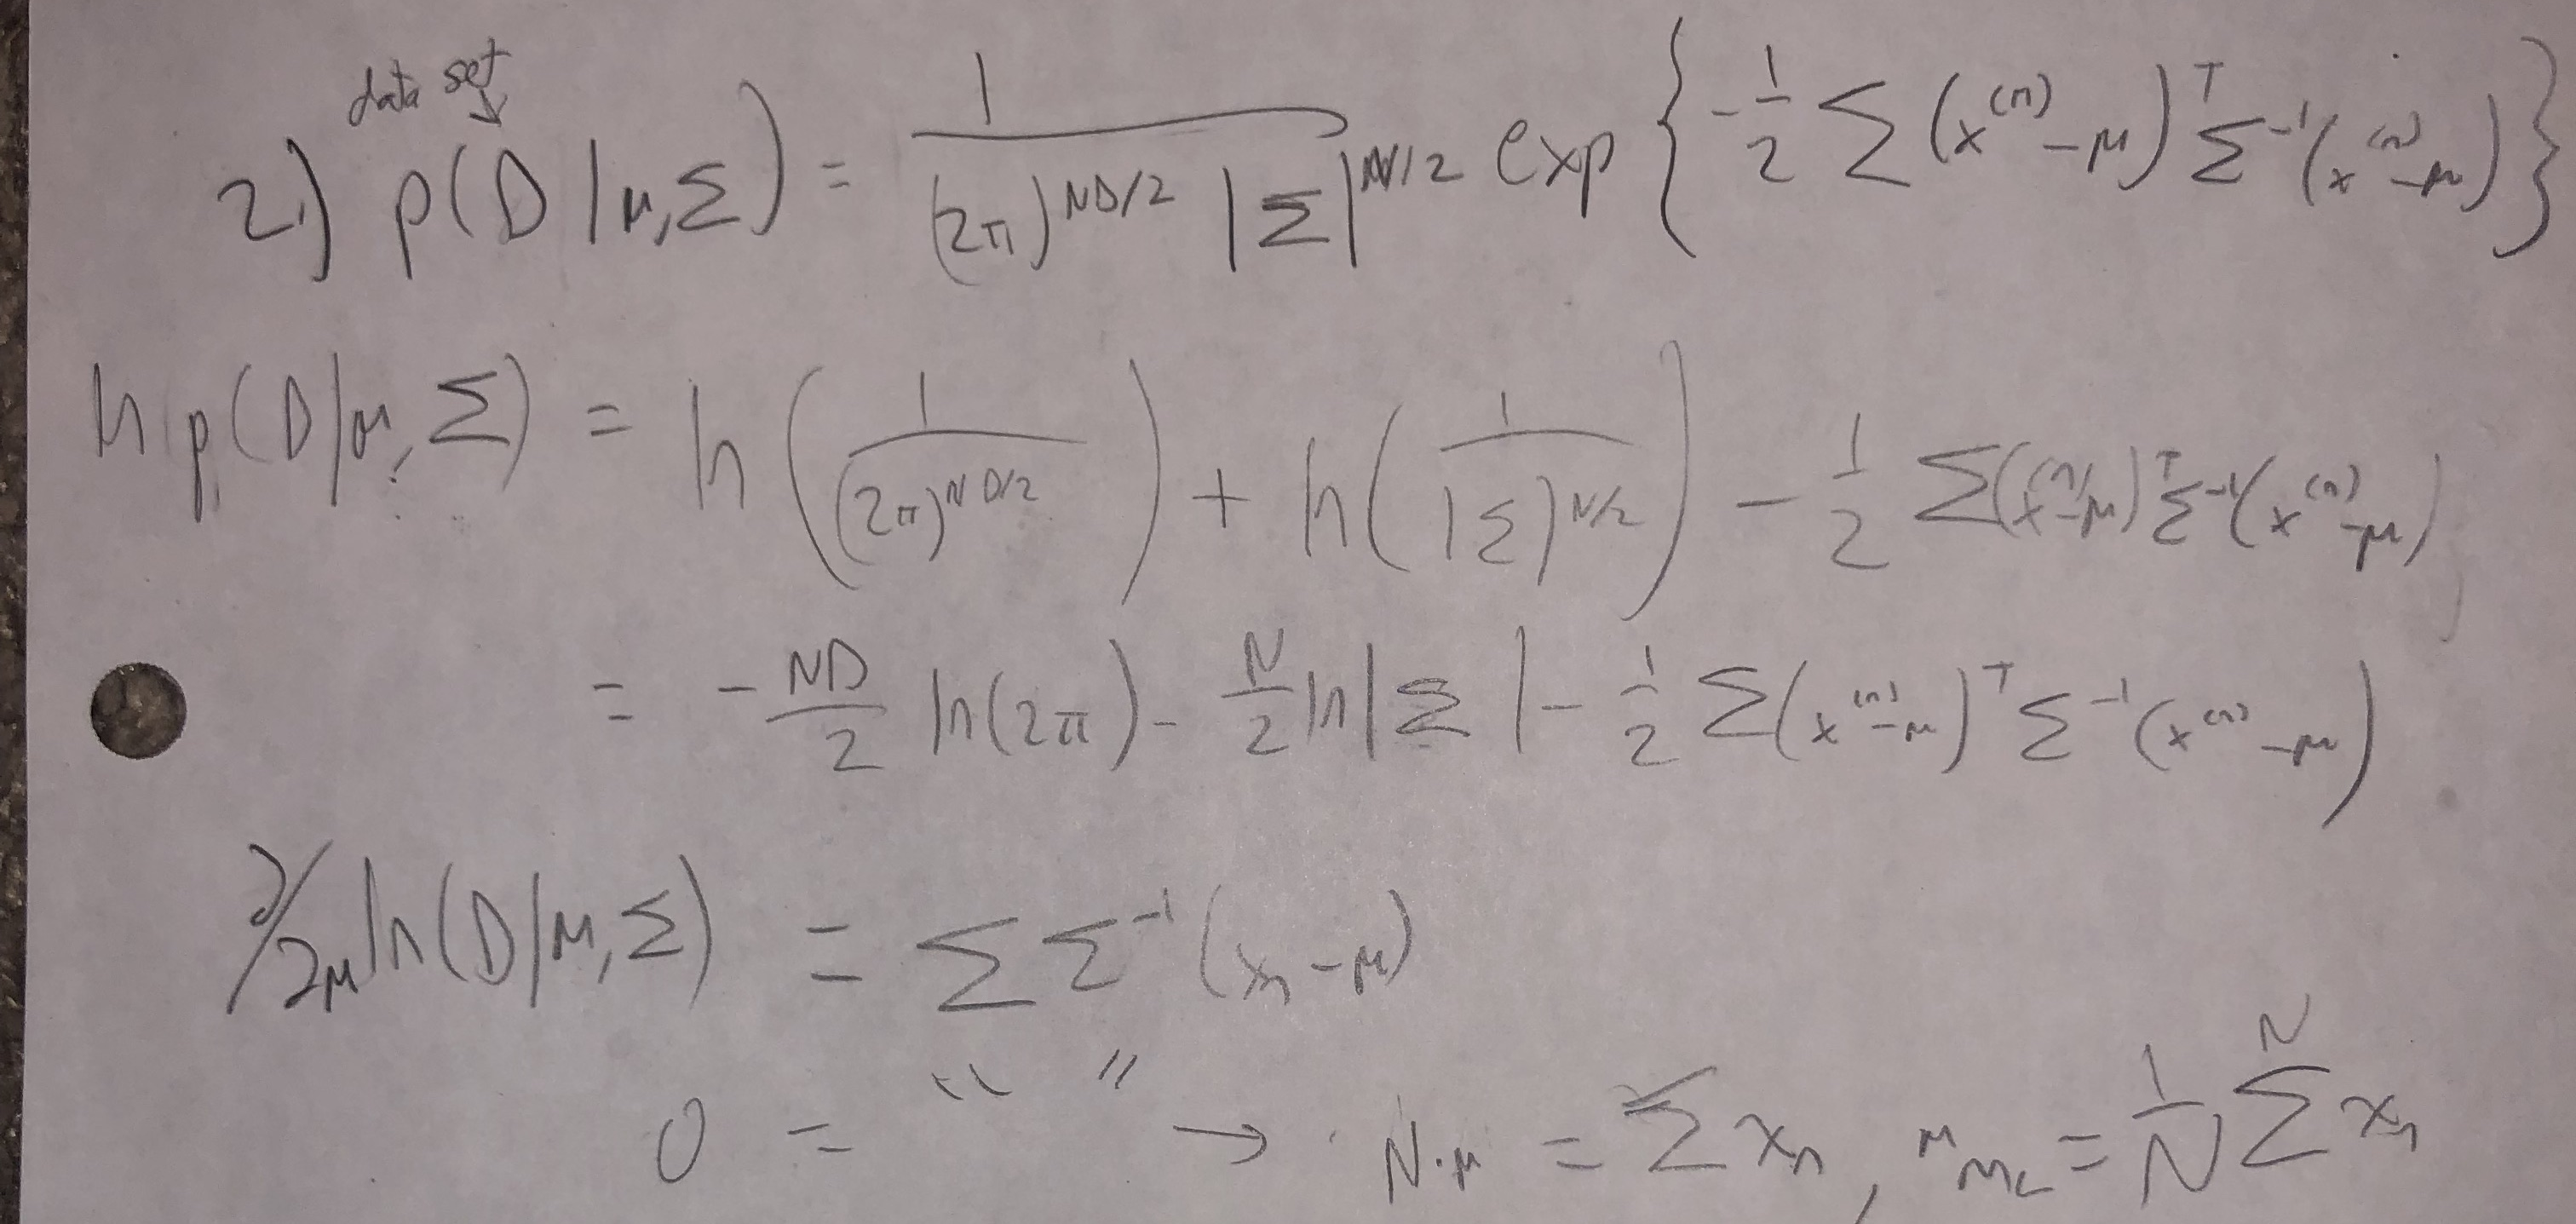 data set
2.) p(D|μ,Σ) = 1/((2π)^{ND/2} |Σ|^{N/2}) exp{-1/2 Σ (x^{(n)}-μ)^T Σ^{-1}(x^{(n)}-μ)}
ln p(D|μ,Σ) = ln(1/(2π)^{ND/2}) + ln(1/|Σ|^{N/2}) - 1/2 Σ(x^{(n)}-μ)^T Σ^{-1}(x^{(n)}-μ)
= -ND/2 ln(2π) - N/2 ln|Σ| - 1/2 Σ(x^{(n)}-μ)^T Σ^{-1}(x^{(n)}-μ)
∂/∂μ ln(D|μ,Σ) = Σ Σ^{-1}(x_n-μ)
0 = " " → N·μ = Σ x_n, μ_{ML} = 1/N Σ^N x_n